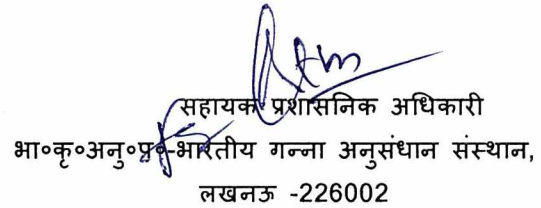 सहायक प्रशासनिक अधिकारी
भा०कृ०अनु०प०-भारतीय गन्ना अनुसंधान संस्थान,
लखनऊ -226002